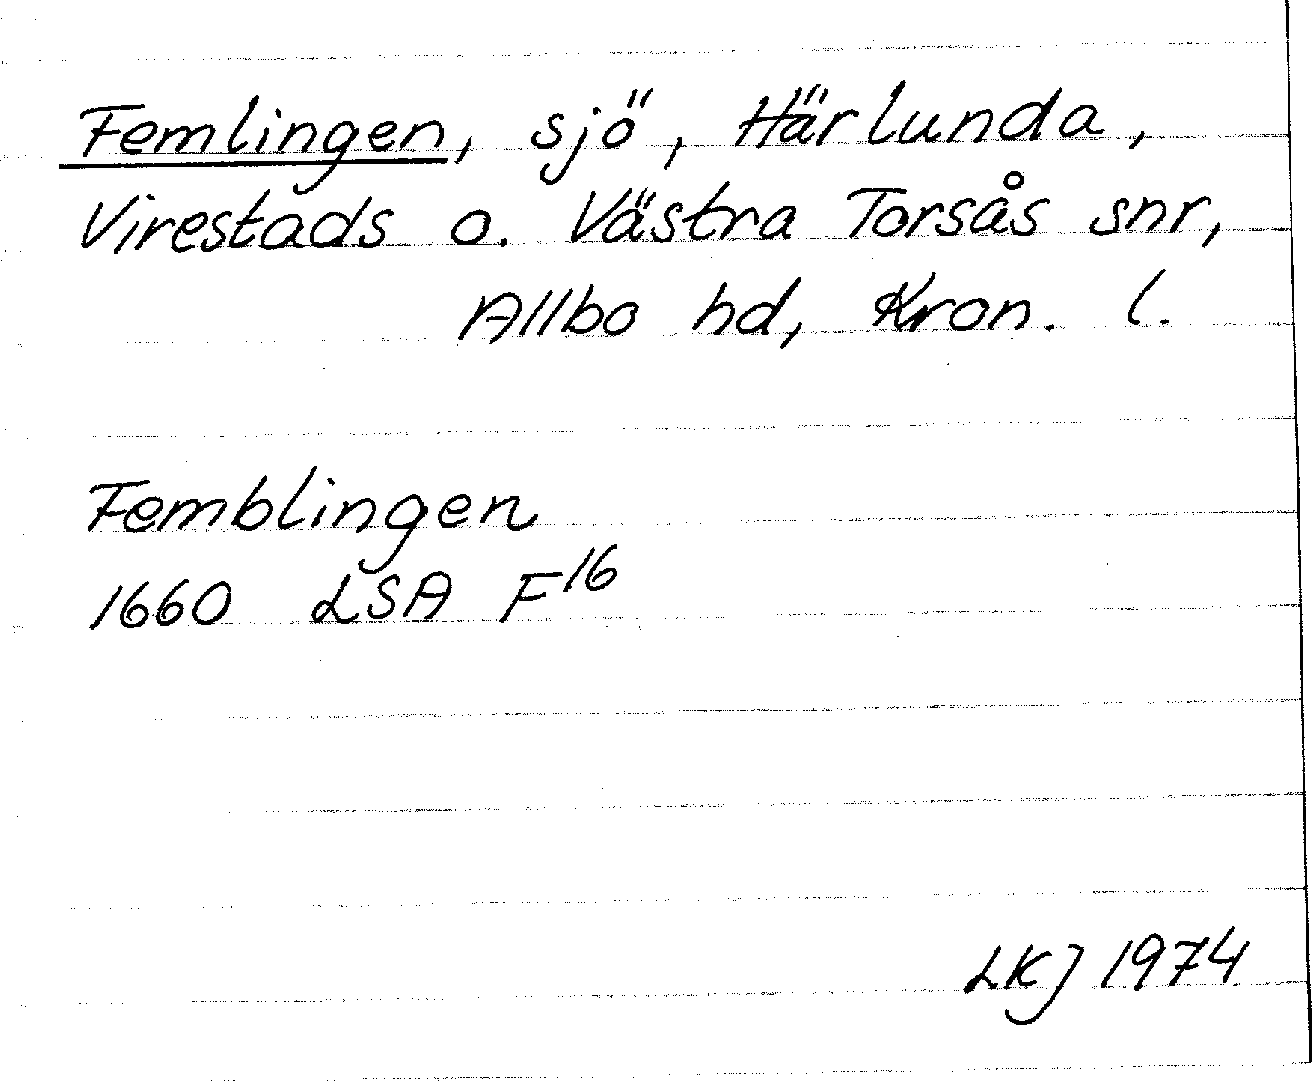 Femlingen, sjö, Härlunda,
Virestads o. Västra Torsås snr,
Allbo hd, Kron. l.
Femblingen
1660 LSA F16
LKJ 1974